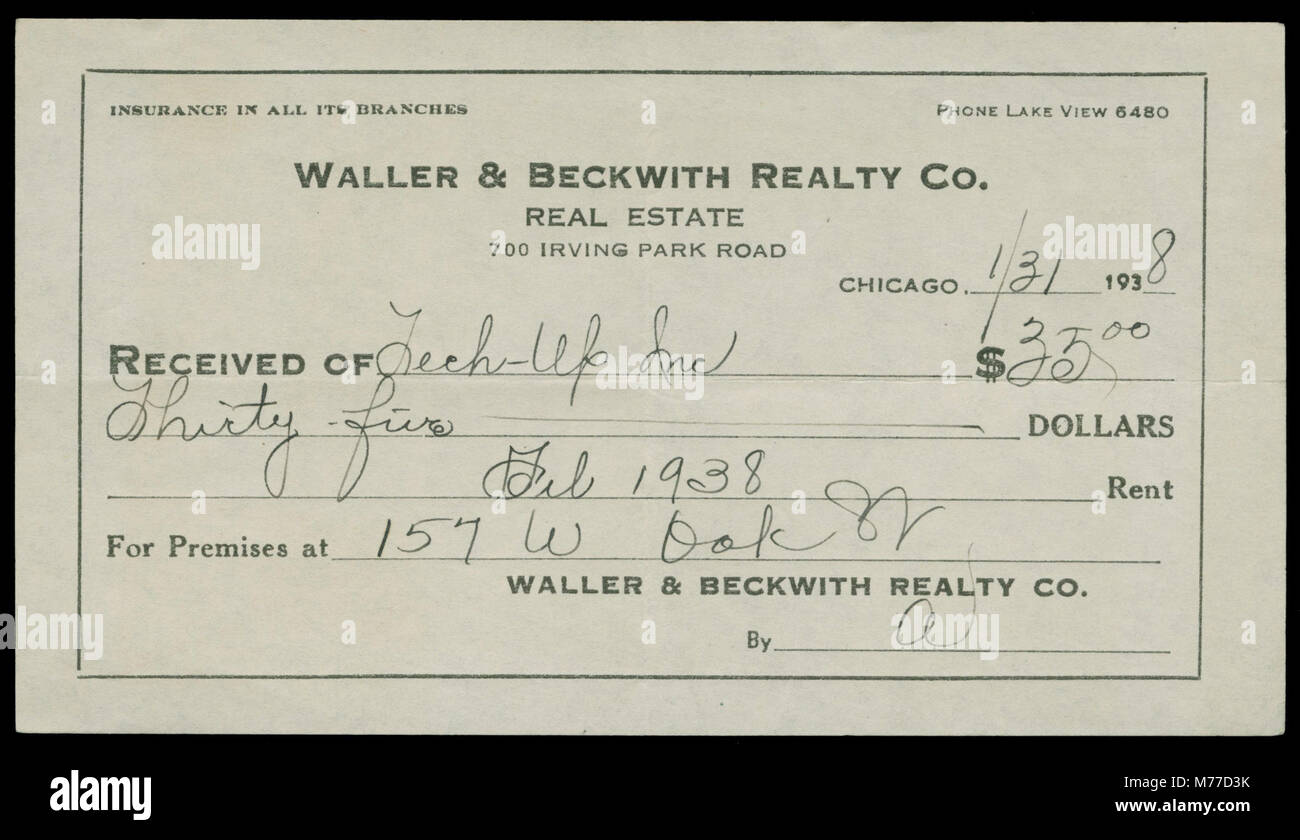 INSURANCE IN ALL ITS BRANCHES PHONE LAKE VIEW 6480
WALLER & BECKWITH REALTY CO.
REAL ESTATE
700 IRVING PARK ROAD
CHICAGO, 1/31 1938
RECEIVED OF Tech-Up Inc $35.00
Thirty-five DOLLARS
Feb 1938 Rent
For Premises at 157 W Oak St
WALLER & BECKWITH REALTY CO.
By
alamy
alamy
alamy
alamy
alamy
alamy stock photo
M77D3K
www.alamy.com